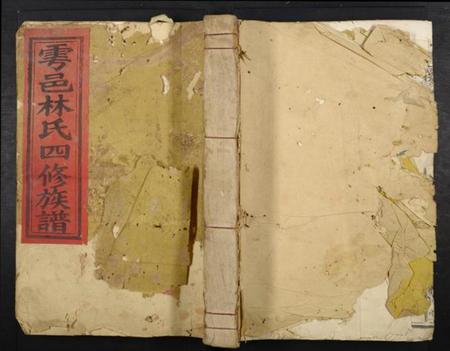 雩邑林氏四修族譜